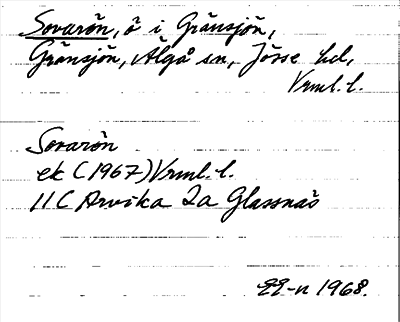 Sovarön, ö i Gränsjön,
Gränsjön, Älgå sn, Jösse hd,
Vrml. l.
Sovarön
ek (1967) Vrml. l.
11C Arvika 2a Glassnäs
1968.